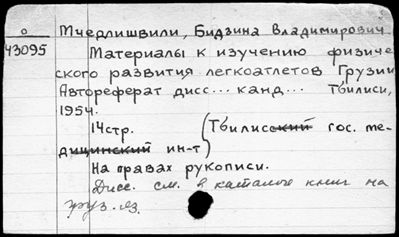 о Мчедлишвили, Бидзина Владимирович
43095 Материалы к изучению физиче
ского развития легкоатлетов Грузии
Автореферат дисс... канд... Тбилиси,
1954.
14стр. (Тбилисский гос. ме-
дицинский ин-т)
На правах рукописи.
Дисс. см. в каталоге книг на
груз. яз.